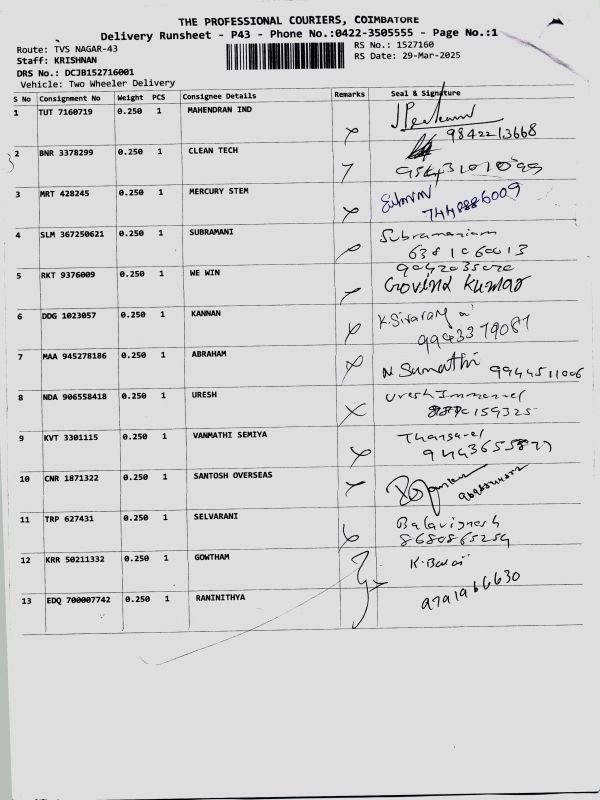 THE PROFESSIONAL COURIERS, COIMBATORE
Delivery Runsheet - P43 - Phone No.:0422-3505555 - Page No.:1
Route: TVS NAGAR-43
RS No.: 1527160
Staff: KRISHNAN
RS Date: 29-Mar-2025
DRS No.: DCJB152716001
Vehicle: Two Wheeler Delivery
S No Consignment No Weight PCS Consignee Details Remarks Seal & Signature
1 TUT 7160719 0.250 1 MAHENDRAN IND
9842213668
2 BNR 3378299 0.250 1 CLEAN TECH
3 MRT 428245 0.250 1 MERCURY STEM
4 SLM 367250621 0.250 1 SUBRAMANI Subramaniam
6381060013
9042035020
5 RKT 9376009 0.250 1 WE WIN Govind Kumar
6 DDG 1023057 0.250 1 KANNAN K.Sivarama
9943379087
7 MAA 945278186 0.250 1 ABRAHAM N Sumathi 9944511006
8 NDA 906558418 0.250 1 URESH Uresh Immanuel
9 KVT 3301115 0.250 1 VANMATHI SEMIYA Thangavel
10 CNR 1871322 0.250 1 SANTOSH OVERSEAS
11 TRP 627431 0.250 1 SELVARANI Balavignesh
8680865254
12 KRR 50211332 0.250 1 GOWTHAM K.Balaji
13 EDQ 700007742 0.250 1 RANINITHYA 9791966630